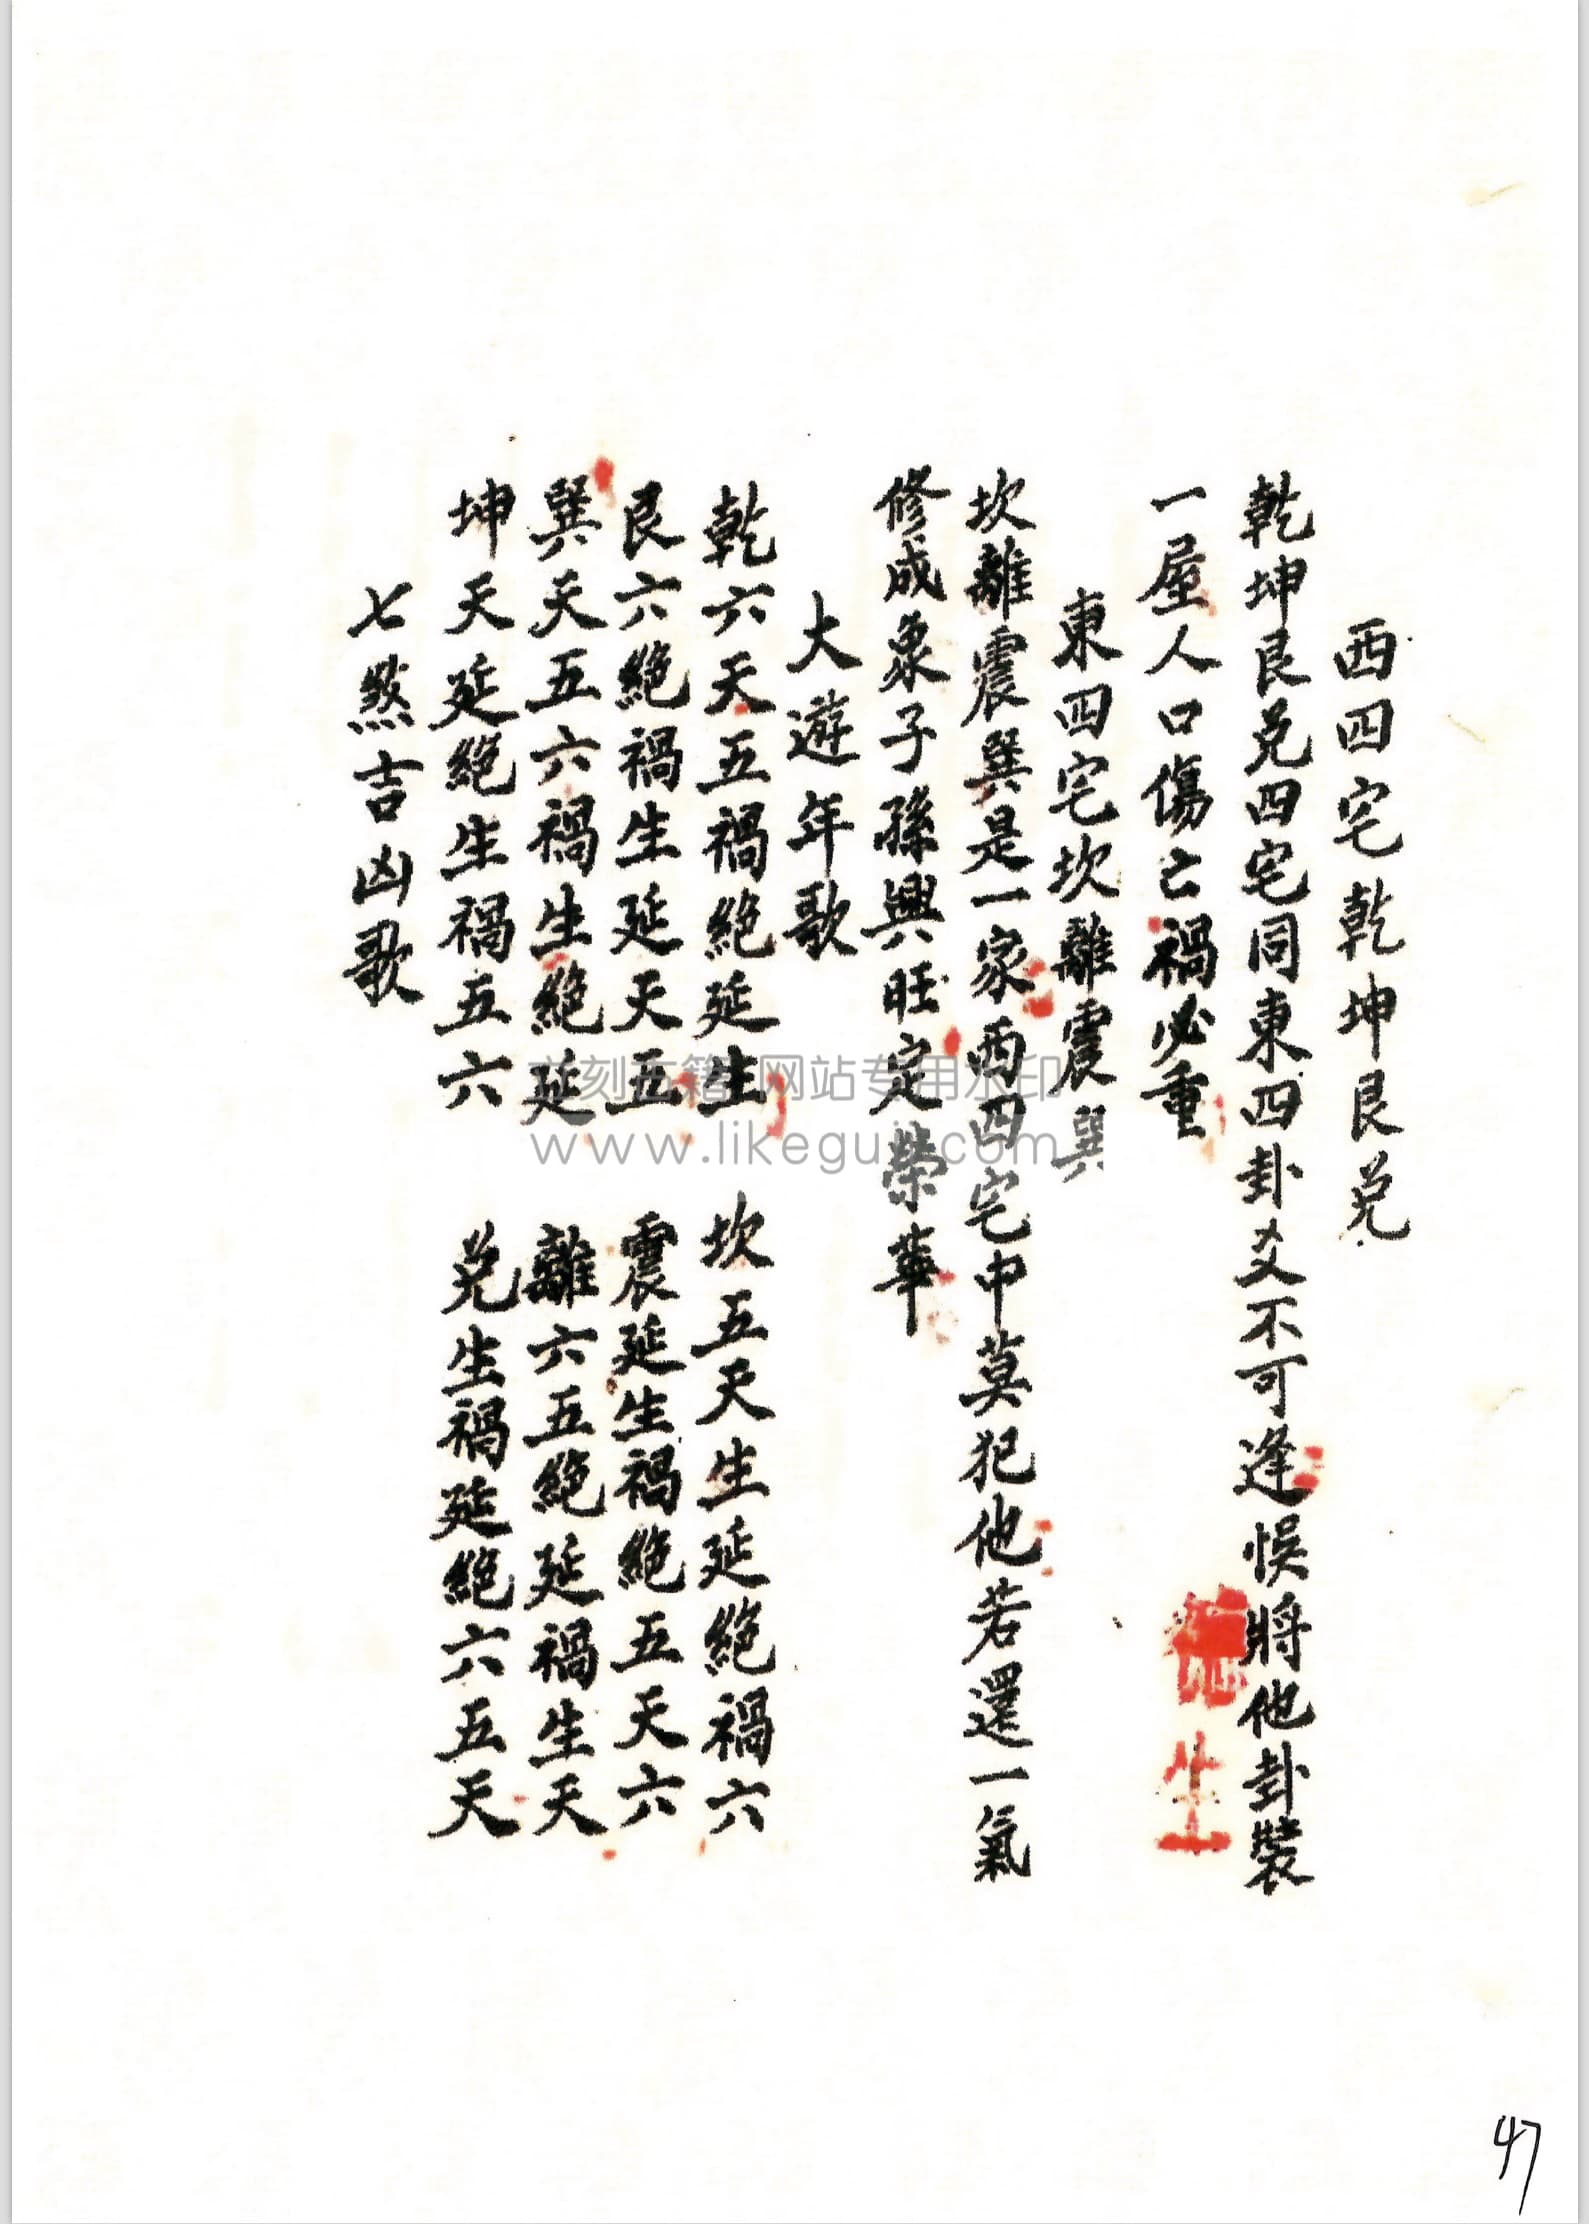 西四宅乾坤艮兑
乾坤艮兑四宅同東四卦爻不可逢悮將他卦裝
一屋人口傷亡禍必重
東四宅坎離震巽
坎離震巽是一家西四宅中莫犯他若還一氣
修成象子孫興旺定榮華
大遊年歌
乾六天五禍絕延生 坎五天生延絕禍六
艮六絕禍生延天五 震延生禍絕五天六
巽天五六禍生絕延 離六五絕延禍生天
坤天延絕生禍五六 兑生禍延絕六五天
七煞吉凶歌
网站专用水印
www.likeguji.com
47